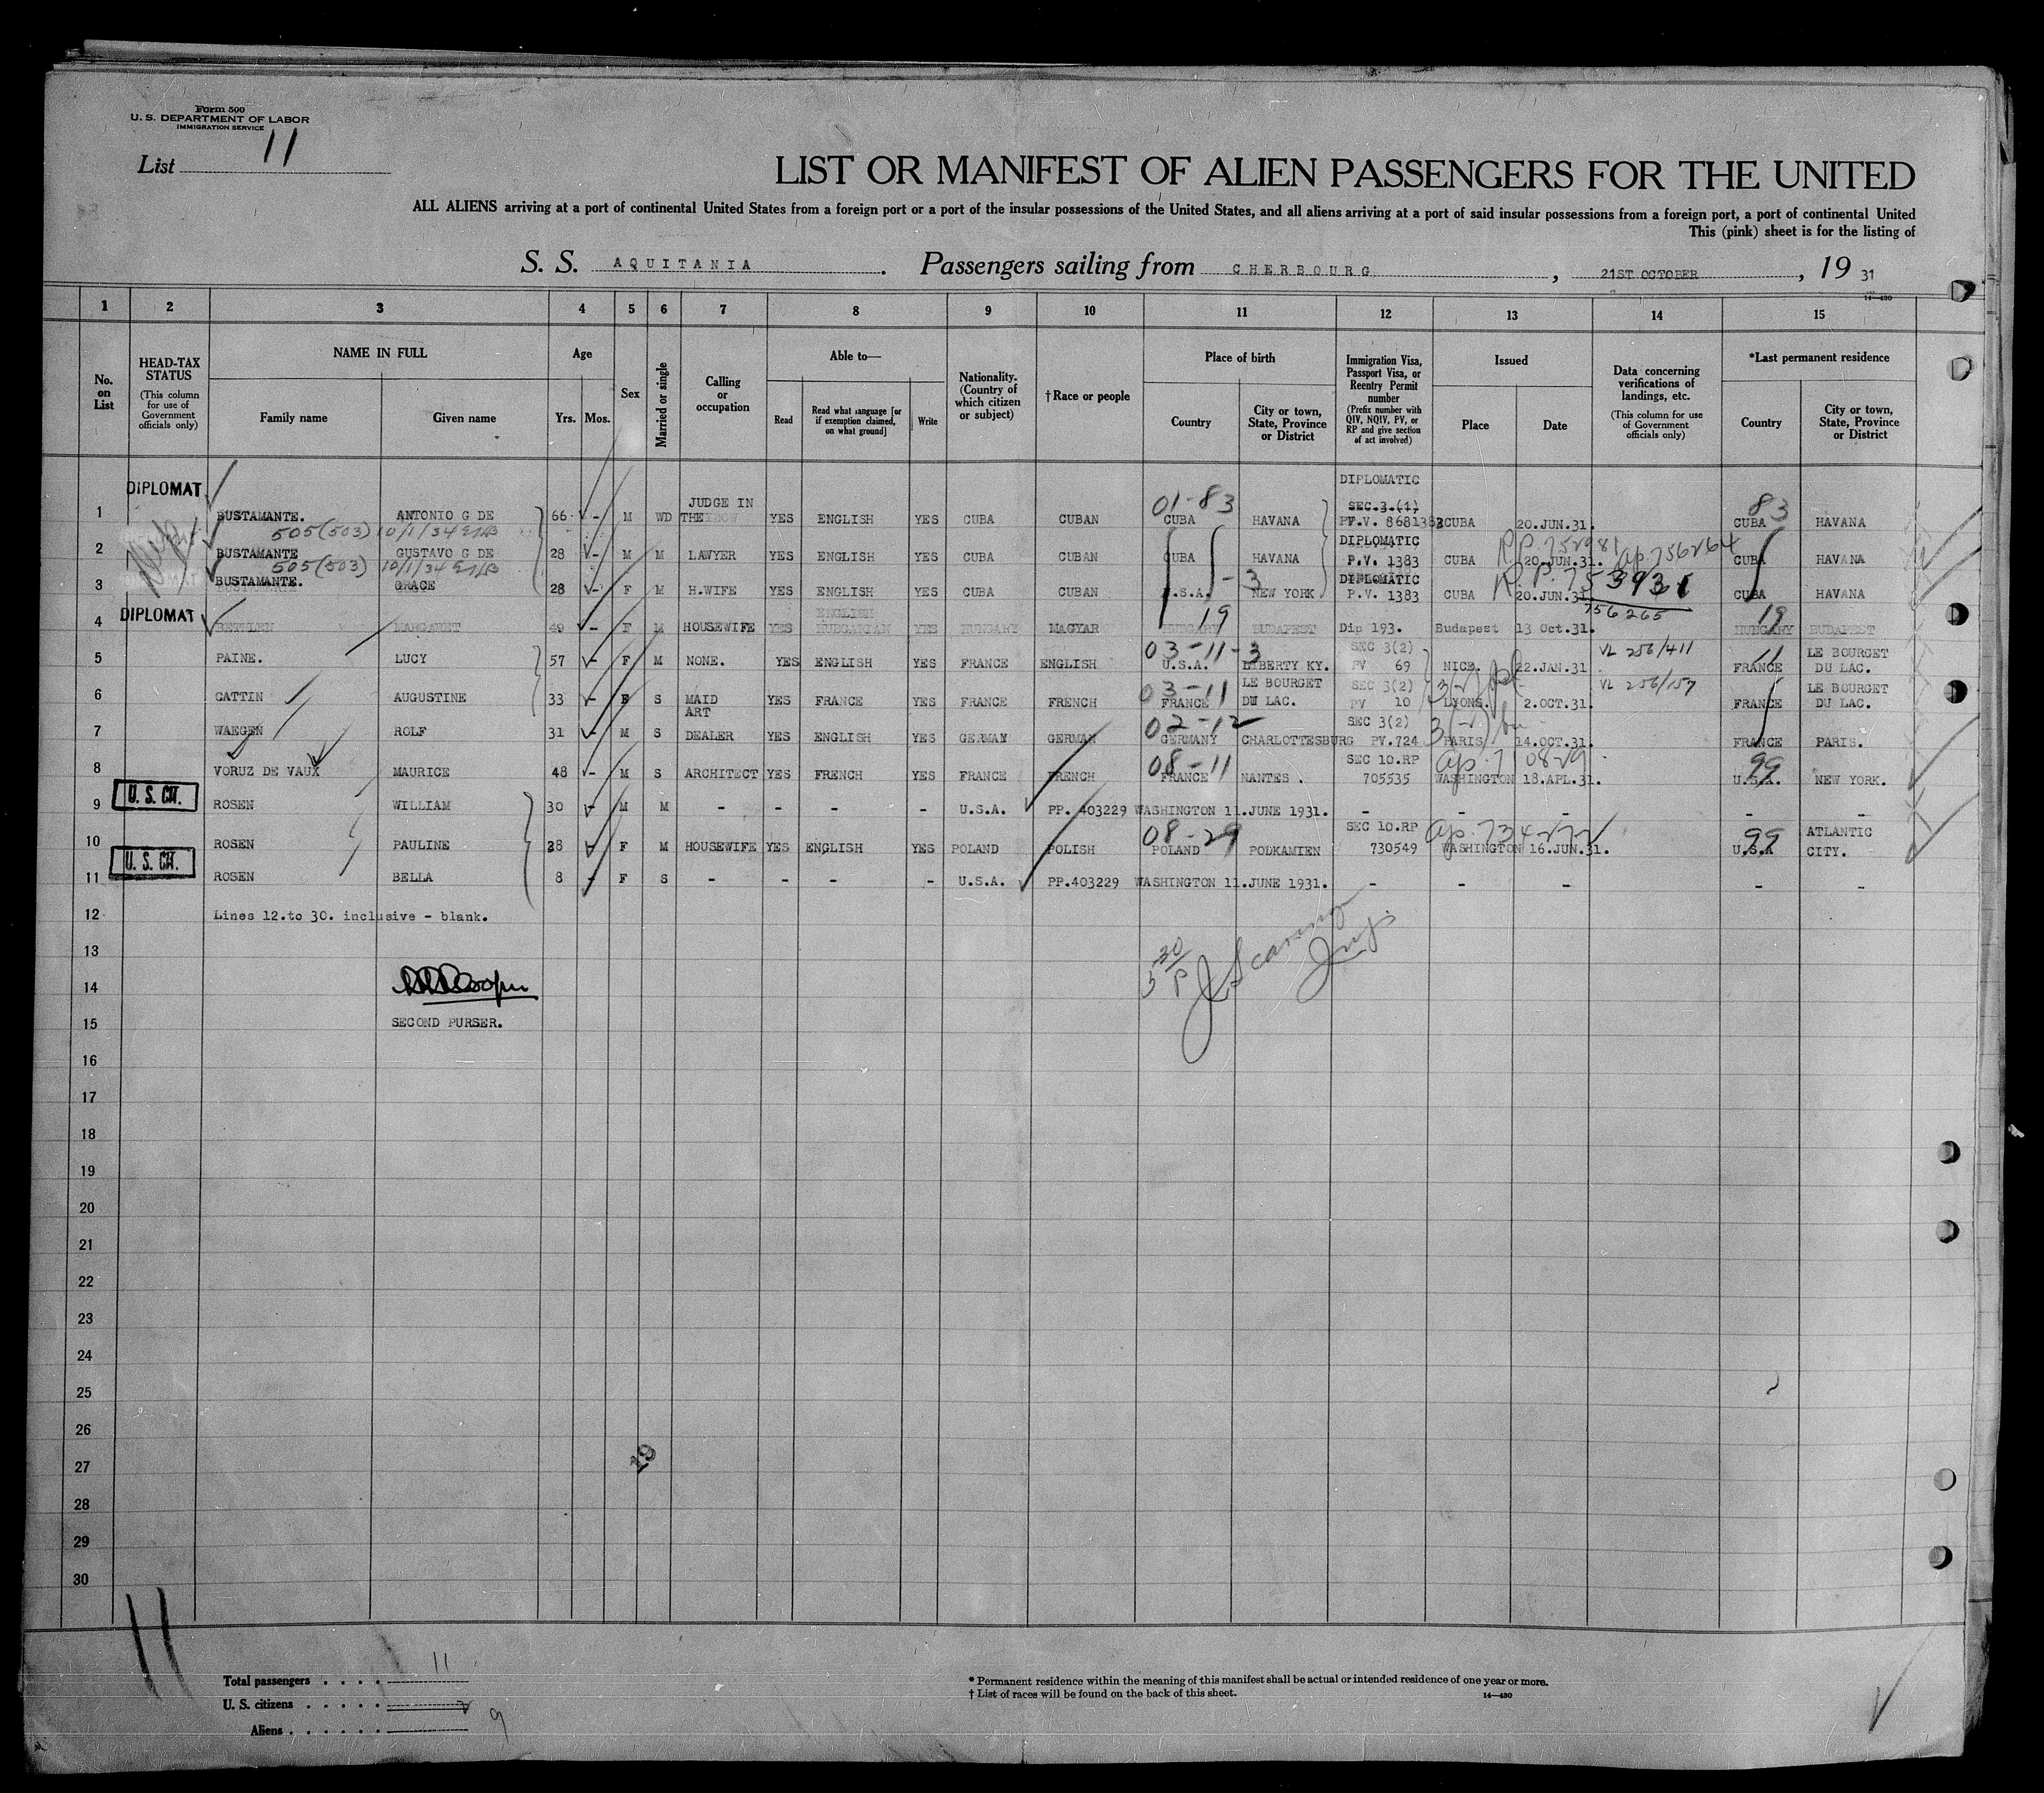 Form 500
U. S. DEPARTMENT OF LABOR
IMMIGRATION SERVICE
List 11
LIST OR MANIFEST OF ALIEN PASSENGERS FOR THE UNITED
ALL ALIENS arriving at a port of continental United States from a foreign port or a port of the insular possessions of the United States, and all aliens arriving at a port of said insular possessions from a foreign port, a port of continental United
This (pink) sheet is for the listing of
S. S. AQUITANIA. Passengers sailing from CHERBOURG, 21ST OCTOBER, 19 31
14—430
1 2 3 4 5 6 7 8 9 10 11 12 13 14 15
No. on List
HEAD-TAX STATUS (This column for use of Government officials only)
NAME IN FULL
Family name Given name
Age
Yrs. Mos.
Sex
Married or single
Calling or occupation
Able to—
Read Read what language [or if exemption claimed, on what ground] Write
Nationality. (Country of which citizen or subject)
† Race or people
Place of birth
Country City or town, State, Province or District
Immigration Visa, Passport Visa, or Reentry Permit number (Prefix number with QIV, NQIV, PV, or RP and give section of act involved)
Issued
Place Date
Data concerning verifications of landings, etc. (This column for use of Government officials only)
*Last permanent residence
Country City or town, State, Province or District
DIPLOMAT DIPLOMATIC
JUDGE IN 01-83 SEC.3.(1) 83
1 BUSTAMANTE. ANTONIO G DE 66 - M WD THE YES ENGLISH YES CUBA CUBAN CUBA HAVANA CUBA 20.JUN.31. CUBA HAVANA
505(503) 10/1/34
DIPLOMATIC
2 BUSTAMANTE GUSTAVO G DE 28 - M M LAWYER YES ENGLISH YES CUBA CUBAN CUBA HAVANA P.V. 1383 CUBA 20.JUN.31. R.P. 752981 ap. 756264 CUBA HAVANA
505(503) 10/1/34
DIPLOMATIC
3 BUSTAMANTE. GRACE 28 - F M H.WIFE YES ENGLISH YES CUBA CUBAN U.S.A. -3 NEW YORK P.V. 1383 CUBA 20.JUN.31 R.P. 753931 CUBA HAVANA
DIPLOMAT ENGLISH 19 756265 19
4 BETHLEN MARGARET 40 - F M HOUSEWIFE YES HUNGARIAN YES HUNGARY MAGYAR HUNGARY BUDAPEST Dip 193. Budapest 13 Oct.31. HUNGARY BUDAPEST
03-11-3 SEC 3(2) VL 256/411 11 LE BOURGET
5 PAINE. LUCY 57 - F M NONE. YES ENGLISH YES FRANCE ENGLISH U.S.A. LIBERTY KY. PV 69 NICE. 22.JAN.31 FRANCE DU LAC.
03-11 LE BOURGET SEC 3(2) VL 256/157 LE BOURGET
6 CATTIN AUGUSTINE 33 - F S MAID YES FRANCE YES FRANCE FRENCH FRANCE DU LAC. PV 10 LYONS. 2.OCT.31. FRANCE DU LAC.
ART 02-12 SEC 3(2)
7 WAEGEN ROLF 31 - M S DEALER YES ENGLISH YES GERMAN GERMAN GERMANY CHARLOTTESBURG PV.724 PARIS 14.OCT.31. FRANCE PARIS.
08-11 SEC 10.RP ap. 710829 99
8 VORUZ DE VAUX MAURICE 48 - M S ARCHITECT YES FRENCH YES FRANCE FRENCH FRANCE NANTES . 705535 WASHINGTON 18.APL.31. U.S.A. NEW YORK.
U. S. CIT.
9 ROSEN WILLIAM 30 - M M - - - - U.S.A. PP. 403229 WASHINGTON 11.JUNE 1931. - - - - -
08-29 SEC 10.RP ap. 734272 99 ATLANTIC
10 ROSEN PAULINE 28 - F M HOUSEWIFE YES ENGLISH YES POLAND POLISH POLAND PODKAMIEN 730549 WASHINGTON 16.JUN.31. U.S.A CITY.
U. S. CIT.
11 ROSEN BELLA 8 - F S - - - - U.S.A. PP.403229 WASHINGTON 11.JUNE 1931. - - - - -
12 Lines 12.to 30. inclusive - blank.
13
14
15 SECOND PURSER.
16
17
18
19
20
21
22
23
24
25
26
27
28
29
30
19
11
Total passengers . . . . 11
U. S. citizens . . . . . 2
Aliens . . . . . . 9
* Permanent residence within the meaning of this manifest shall be actual or intended residence of one year or more.
† List of races will be found on the back of this sheet.
14—430